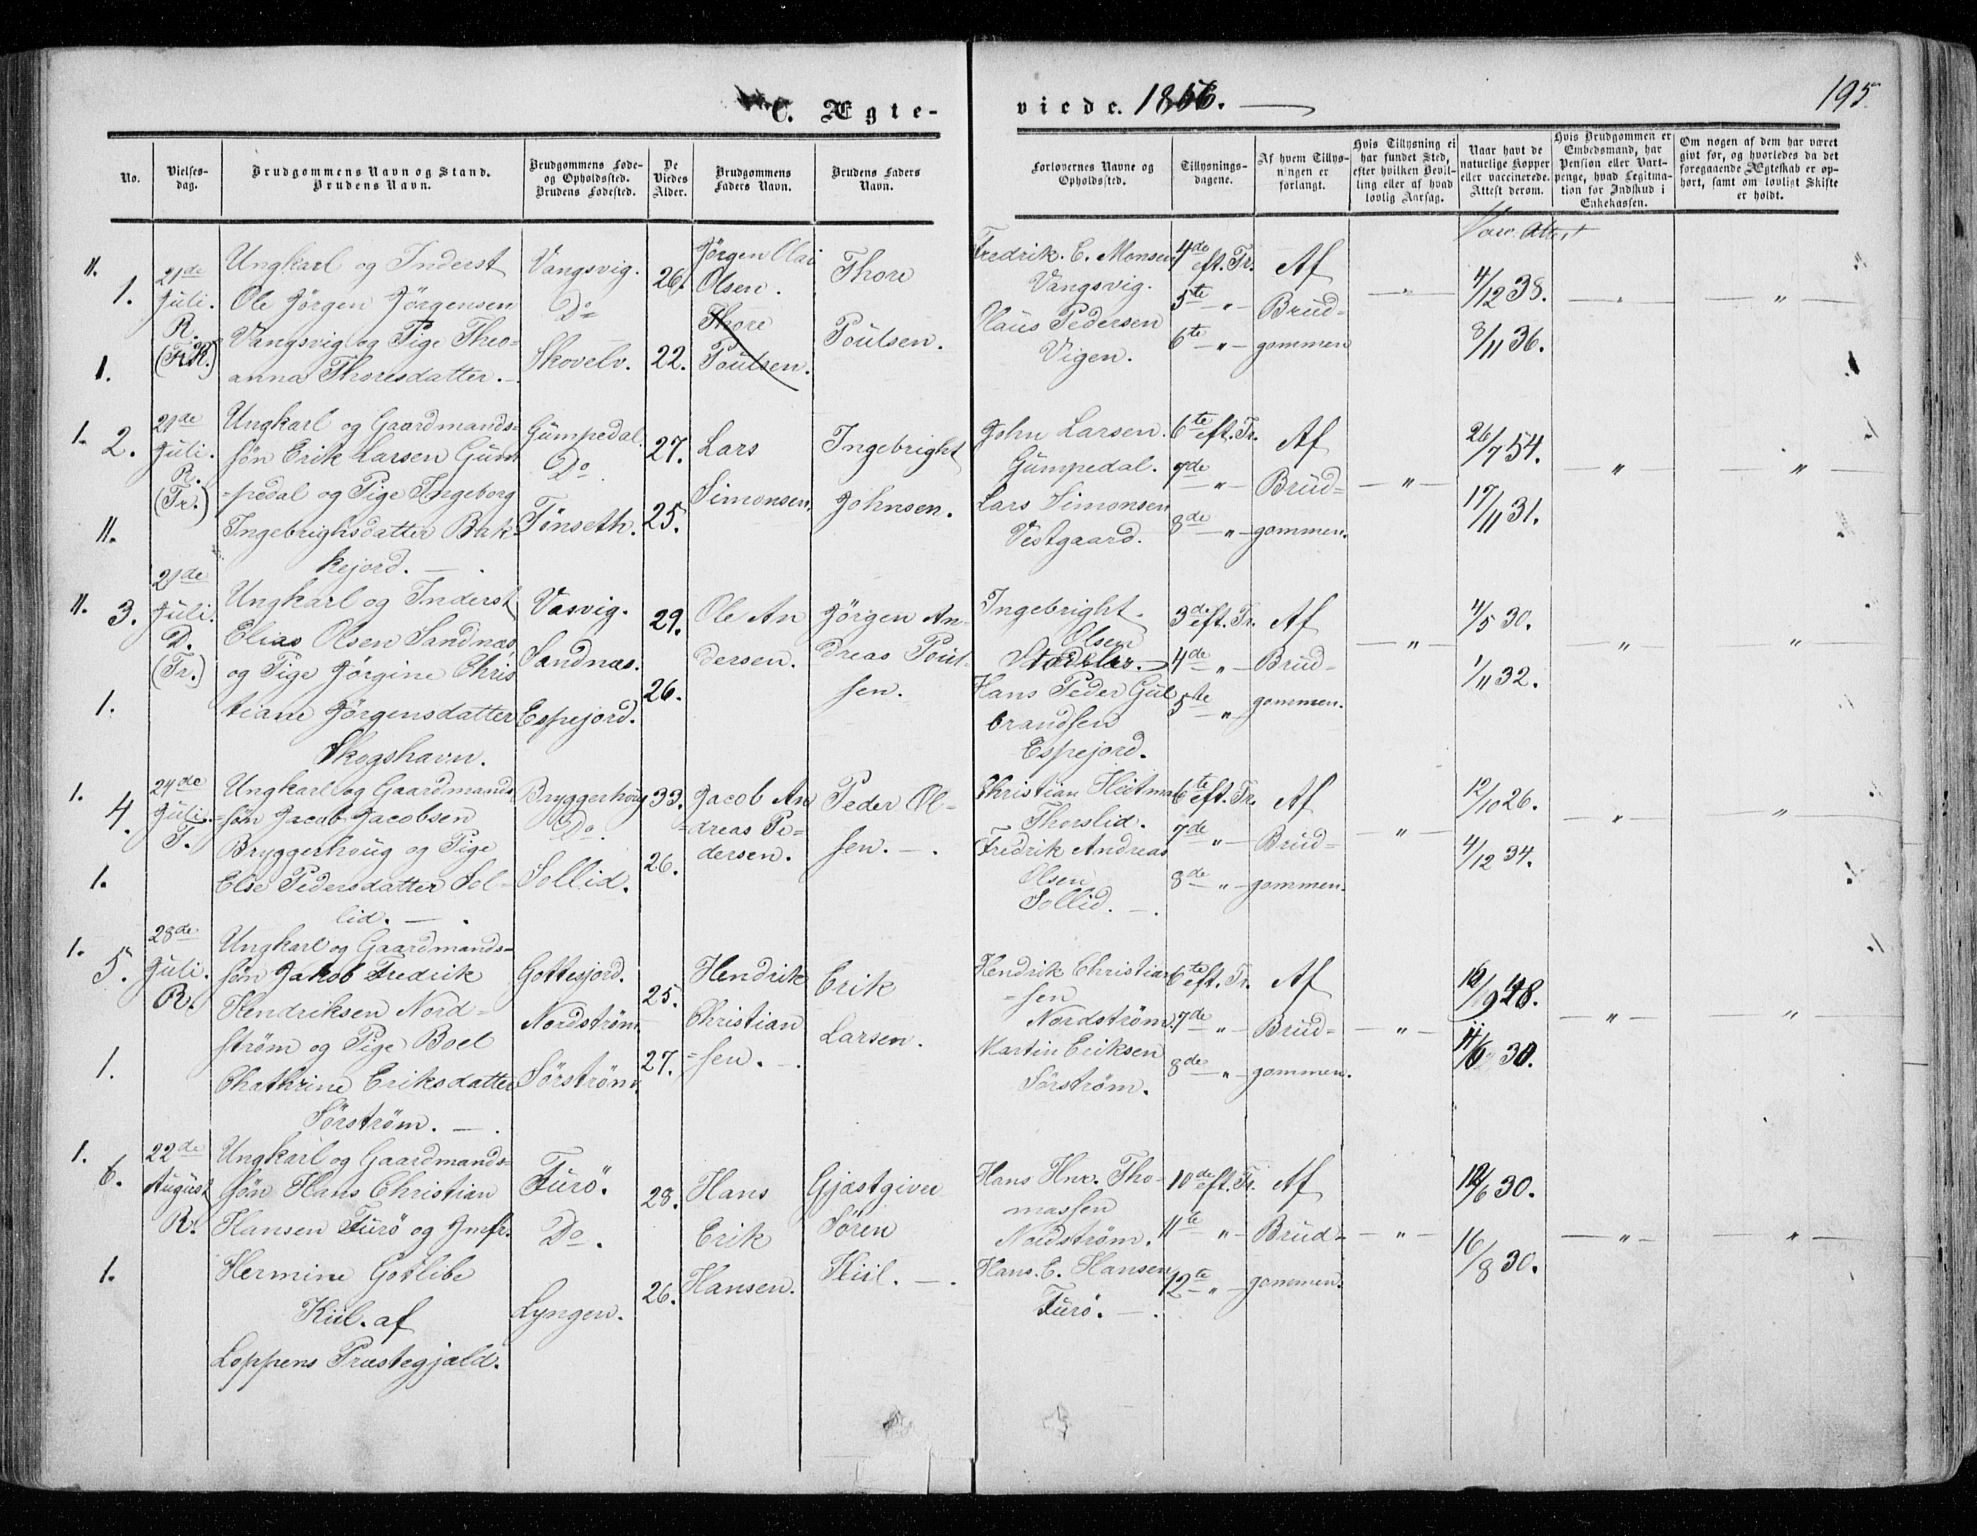 C. Ægte-
viede. 1856.
195.
No.
Vielses-
dag.
Brudgommens Navn og Stand.
Brudens Navn.
Brudgommens Føde-
og Opholdssted.
Brudens Fødested.
De
Viedes
Alder.
Brudgommens
Faders Navn.
Brudens Faders
Navn.
Forlovernes Navne og
Opholdssted.
Tillysnings-
dagene.
Af hvem Tillys-
ningen er
forlangt.
Hvis Tillysning ei
har fundet Sted,
efter hvilken Bevil-
ling eller af hvad
lovlig Aarsag.
Naar havt de
naturlige Kopper
eller vaccinerede.
Attest derom.
Hvis Brudgommen er
Embedsmand, har
Pension eller Vart-
penge, hvad Legitima-
tion for Indskud i
Enkekassen.
Om nogen af dem har været
givt før, og hvorledes da det
foregaaende Ægteskab er op-
hørt, samt om lovligt Skifte
er holdt.
Vacc. Attest
11.
1.
1.
21de
Juli.
R.
Ungkarl og Inderst
Ole Jørgen Jørgensen
Vangsvig og Pige Theo-
anna Thoresdatter.
Vangsvig.
Do
Skovelv.
26.
22.
Jørgen Olai
Olsen.
Thore
Poulsen.
Thore
Poulsen.
Fredrik. E. Monsen
Vangsvig.
Claus Pedersen
Vigen.
4de eft. Tr.
5te — " —
6te — " —
Af
Brud-
gommen
— " —
4/12 38.
8/11 36.
— " —
— " —
1.
2.
11.
21de
Juli.
R.
(Tr.)
Ungkarl og Gaardmands-
søn Erik Larsen Gum
-pedal og Pige Ingeborg
Ingebrigtsdatter Bak-
kejord. — .
Gumpedal.
Do
Tønseth.
27.
25.
Lars
Simonsen.
Ingebright
Johnsen.
John Larsen.
Gumpedal.
Lars Simonsen
Vestgaard.
6te eft. Tr.
7de — " —
8de — " —
Af
Brud-
gommen.
— " —
26/7 54.
17/11 31.
— " —
"
11.
3.
1.
21de
Juli.
D.
(Tr.)
Ungkarl og Inderst
Elias Olsen Sandnæs
og Pige Jørgine Chris
tiane Jørgensdatter
Skogshavn.
Vasvig.
Sandnæs.
Espejord.
29.
26.
Ole An
dersen.
Jørgen An-
dreas Poul-
sen.
Ingebright
Olsen
Hans Peder Gul
brandsen
Espejord.
3de eft. Tr.
4de — " —
5te — " —
Af
Brud-
gommen.
— " —
4/5 30.
1/11 32.
— " —
"
1.
4.
1.
24de
Juli.
T.
Ungkarl og Gaardmands
-søn Jacob Jacobsen
Bryggerhoug og Pige
Else Pedersdatter Sol-
lid. — .
Bryggerhoug
Do.
Sollid.
33.
26.
Jacob An
-dreas Pe-
dersen.
Peder Ol-
sen. — .
Christian Heitman
Thorslid.
Fredrik Andreas
Olsen
Sollid. — .
6te eft. Tr.
7de — " —
8de — " —
Af
Brud-
gommen.
— " —
12/10 26.
4/12 34.
— " —
— " —
1.
5.
1.
28de
Juli.
R.
Ungkarl og Gaardmands-
søn Jakob Fredrik
Hendriksen Nord-
strøm og Pige Boel
Chathrine Eriksdatter
Sørstrøm. — .
Gottesjord.
Nordstrøm
Sørstrøm.
25.
27.
Hendrik
Christian
-sen. — .
Erik
Larsen.
Hendrik Christian
-sen
Nordstrøm.
Martin Eriksen
Sørstrøm.
6te eft. Tr.
7de — " —
8de — " —
Af
Brud-
gommen.
— " —
30.
— " —
— " —
1.
6.
1.
22de
August
R.
Ungkarl og Gaardmands-
søn Hans Christian
Hansen Furø og Jmfr.
Hermine Gotlibe
Kiil. af
Loppens Præstegjæld.
Furø.
Do.
Lyngen.
28.
26.
Hans
Erik
Hansen.
Gjæstgiver
Søren
Kiil. — .
Hans Hnr. Tho-
massen
Nordstrøm.
Hans. E. Hansen
Furø. — .
10de eft. Tr.
11te — " —
12te — " —
Af
Brud-
gommen.
— " —
30.
16/8 30.
— " —
— " —